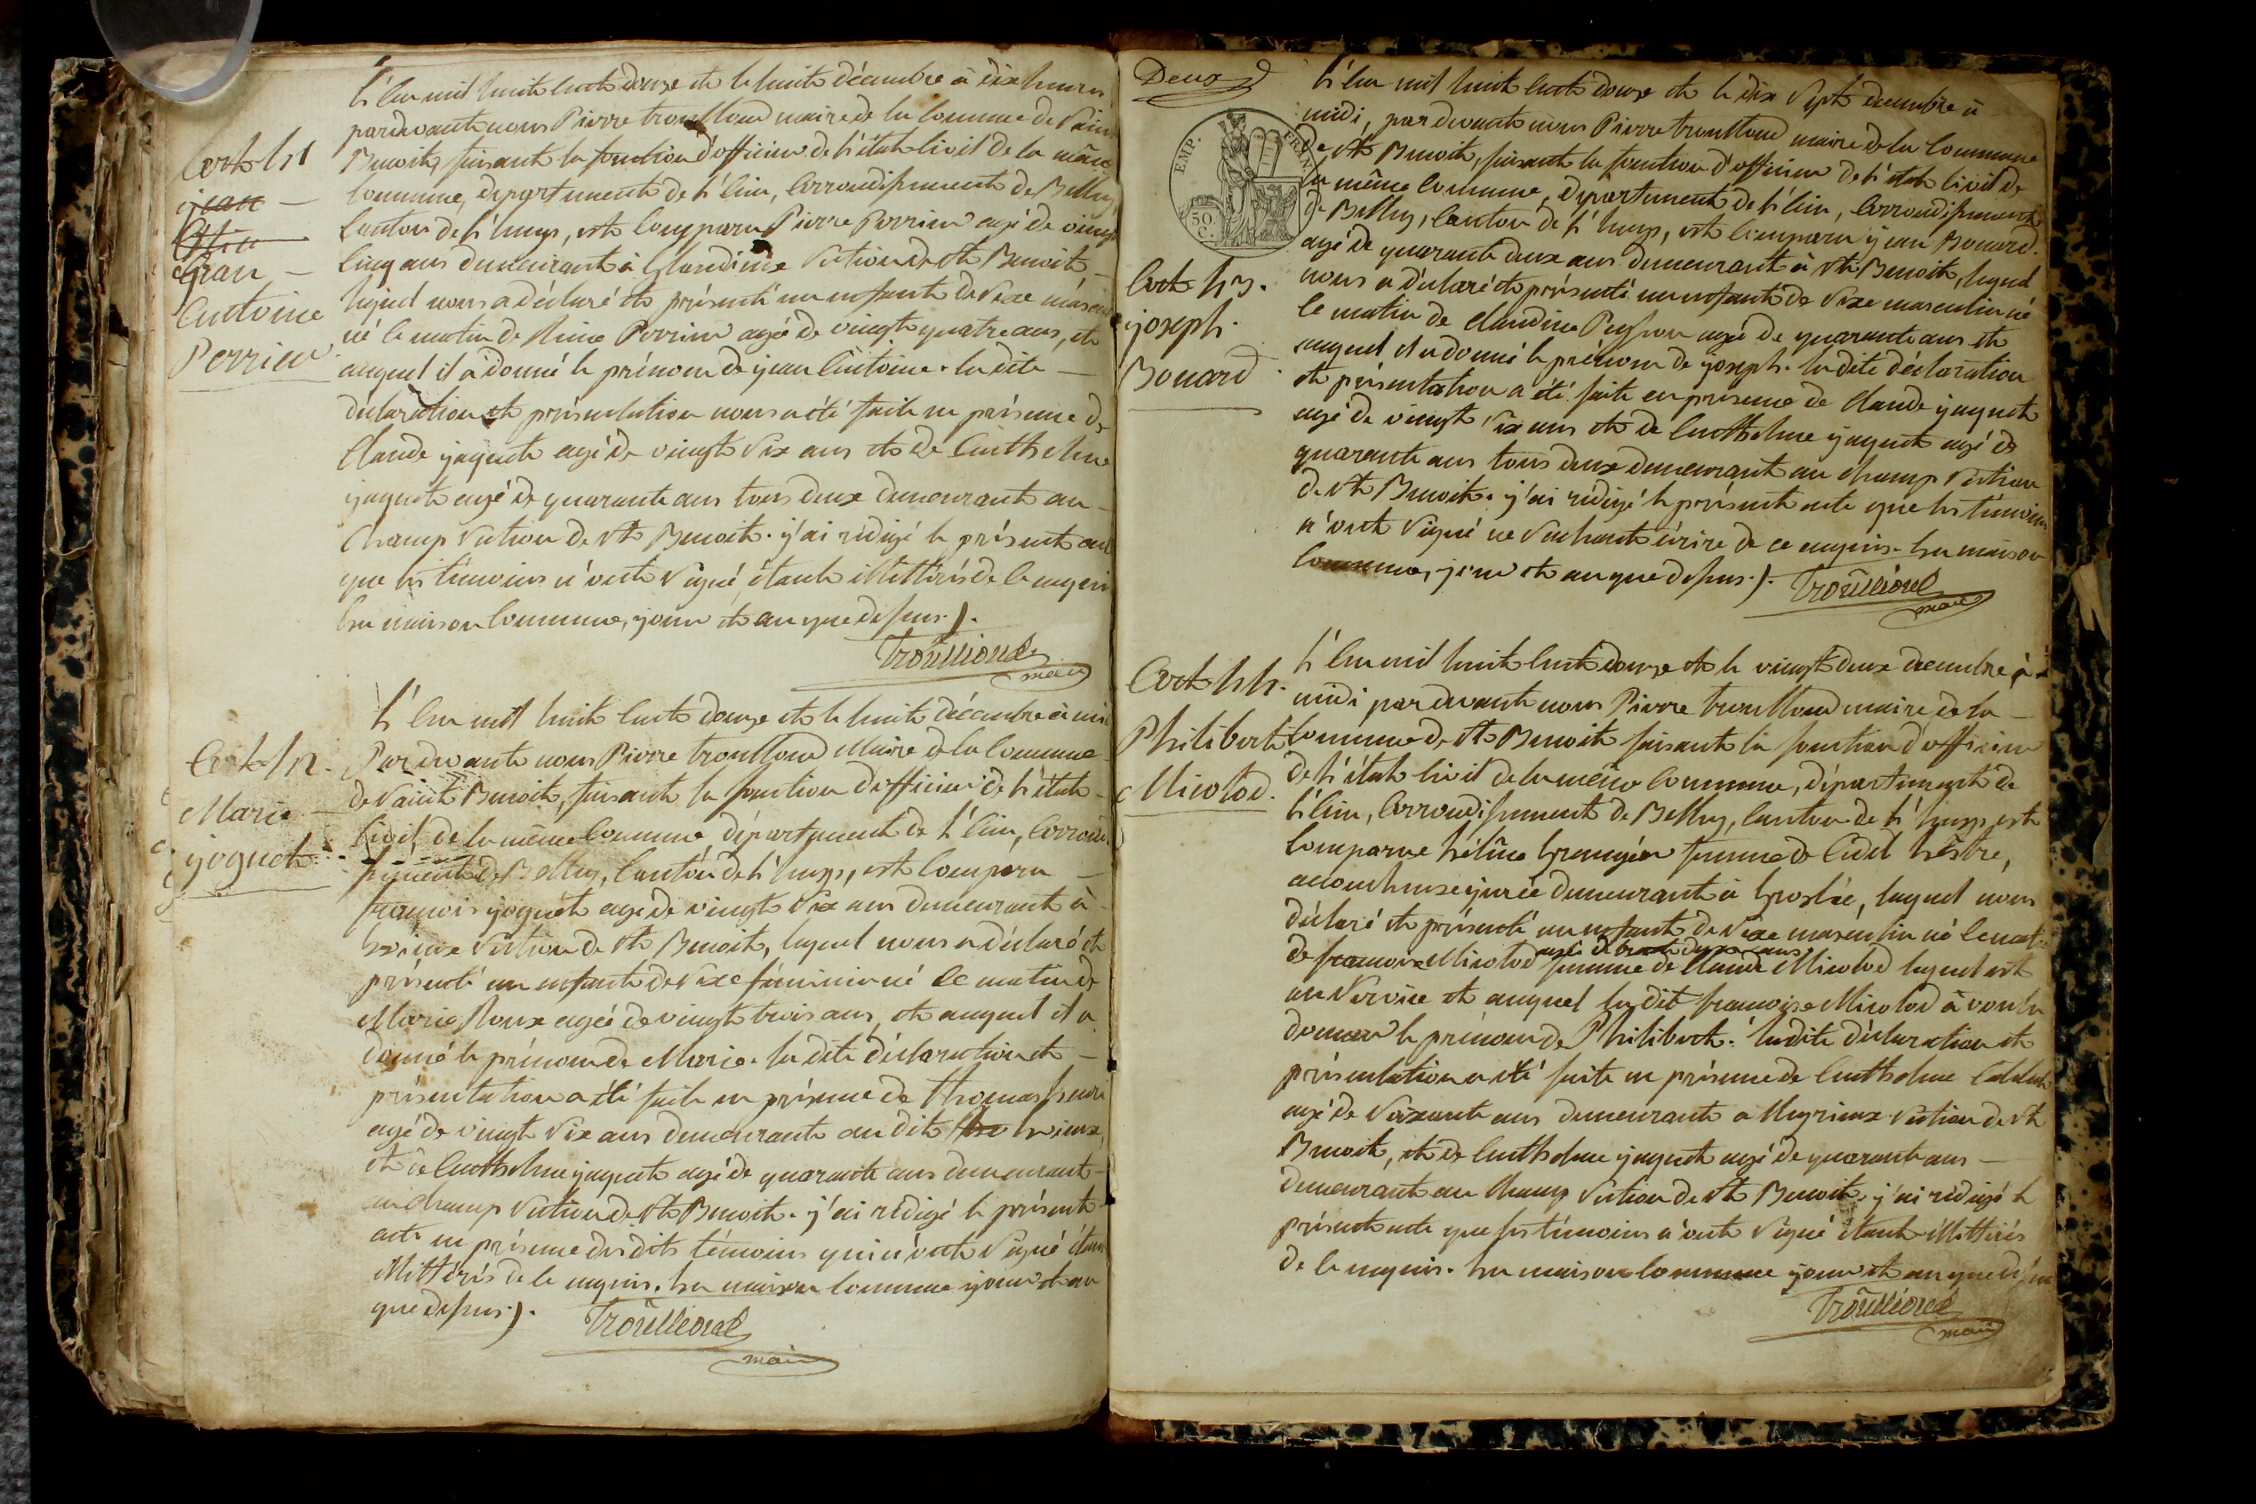 L'an mil huit cent douze et le huit décembre à dix heures
pardevant nous Pierre trouilloud maire de la Commune de Saint
Benoit, faisant la fonction d'officier de l'état Civil de la même
Commune, département de l'Ain, Arrondissement de Belley,
Canton de l'huys, est Comparu Pierre Perrin agé de vingt
cinq ans demeurant à Glandieux Section de St Benoit
lequel nous a déclaré et présenté un enfant de sexe masculin
né le matin de Perrin agé de vingt quatre ans, et
auquel il a donné le prénom de jean Antoine. la dite
déclaration et présentation nous a été faite en présence de
Claude jaquet agé de vingt six ans et de Anthelme
jaquet agé de quarante ans tous deux demeurant au
Champ Section de St Benoit. j'ai rédigé le présent acte
que les témoins n'ont signé, étant illittérés de ce enquis
En maison Commune, jour et an que dessus).
Trouilloud
maire
Act 41
jean
jean
Antoine
Perrin
L'an mil huit cent douze et le huit décembre à midi
Pardevant nous Pierre trouilloud Maire de la Commune
de Saint Benoit, faisant la fonction d'officier de l'état
Civil, de la même Commune, département de l'Ain, Arrondis-
sement de Belley, Canton de l'huys, est Comparu
françois joguet agé de vingt six ans demeurant à
Section de St Benoit, lequel nous a déclaré et
présenté un enfant de sexe féminin né le matin de
Marie Roux agée de vingt trois ans, et auquel il a
donné le prénom de Marie. la dite déclaration et
présentation a été faite en présence de Thomas
agé de vingt six ans demeurant au dit
et de Anthelme jaquet agé de quarante ans demeurant
au champ Section de St Benoit. j'ai rédigé le présent
acte en présence desdits témoins qui n'ont signé étant
illittérés de ce enquis. En maison Commune jour et an
que dessus).
Trouilloud
maire
Act 42.
Marie
joguet
Deux
EMP. FRAN
50 C.
L'an mil huit cent douze et le dix sept décembre à
midi, pardevant nous Pierre trouilloud maire de la Commune
de St Benoit, faisant la fonction d'officier de l'état Civil de
la même Commune, département de l'Ain, Arrondissement
de Belley, Canton de l'huys, est Comparu jean Bonard
agé de quarante deux ans demeurant à St Benoit, lequel
nous a déclaré et présenté un enfant de sexe masculin né
le matin de Claudine Peysson agé de quarante ans et
auquel il a donné le prénom de joseph. la dite déclaration
et présentation a été faite en présence de Claude jaquet
agé de vingt six ans et de Anthelme jaquet agé de
quarante ans tous deux demeurant au champ Section
de St Benoit. j'ai rédigé le présent acte que les témoins
n'ont signé ne sachant écrire de ce enquis. En maison
Commune, jour et an que dessus).
Trouilloud
maire
Act 43.
joseph
Bonard
L'an mil huit cent douze et le vingt deux décembre à
midi pardevant nous Pierre trouilloud maire de la
Commune de St Benoit faisant la fonction d'officier
de l'état Civil de la même Commune, département de
l'Ain, Arrondissement de Belley, Canton de l'huys est
Comparue hélène femme de
accoucheuse jurée demeurant à Groslée, laquel nous
déclaré et présenté un enfant de sexe masculin né le matin
de françoise Micolod agée de trente deux ans femme de Claude Micolod lequel est
au service et auquel la dit françoise Micolod à voulu
donner le prénom de Philibert. ladite déclaration et
présentation a été faite en présence de Anthelme
agé de soixante ans demeurant a Meyrieux Section de St
Benoit, et de Anthelme jaquet agé de quarante ans
demeurant au Champ Section de St Benoit. j'ai rédigé le
présent acte que les témoins n'ont signé étant illittérés
de ce enquis. En maison Commune jour et an que dessus
Trouilloud
maire
Act 44.
Philibert
Micolod.